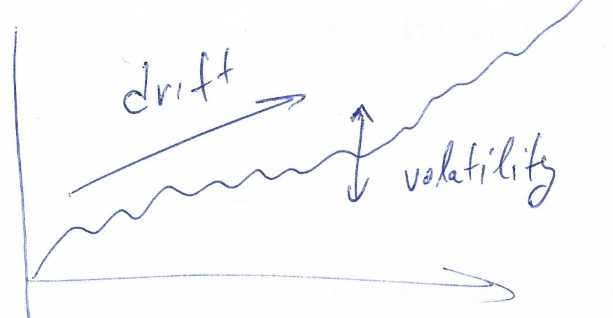 drift
volatility